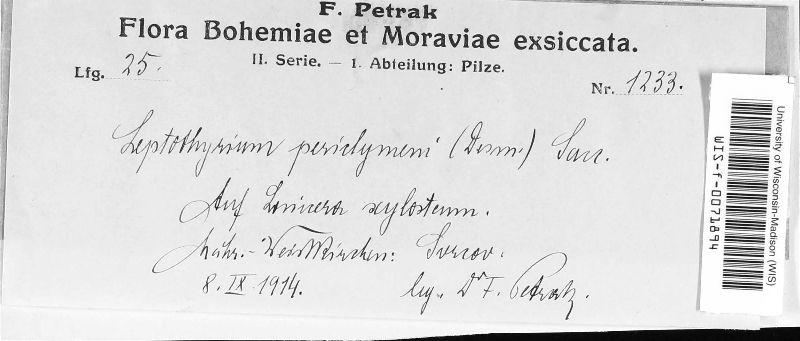 F. Petrak
Flora Bohemiae et Moraviae exsiccata.
II. Serie. — 1. Abteilung: Pilze.
Lfg. 25.
Nr. 1233.
Leptothyrium periclymeni (Desm.) Sacc.
Auf Lonicera xylosteum.
Mähr.-Weisskirchen: Svrcov.
8. IX. 1914.
leg. Dr F. Petrak.
University of Wisconsin-Madison (WIS)
WIS-f-0071894